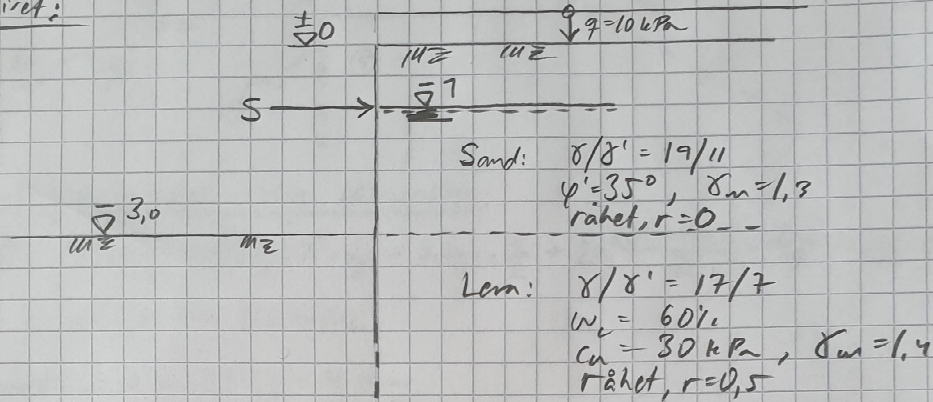 ±0
q=10 kPa
-1
S
Sand: γ/γ' = 19/11
φ'=35°, γm=1,3
råhet, r=0
-3,0
Lera: γ/γ' = 17/7
wL = 60%
cu = 30 kPa, γm=1,4
råhet, r=0,5